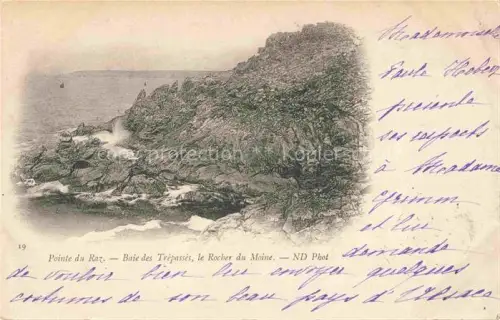 Mademoiselle
Paule
présente
ses respects
à Madame
Grimm
et lui
demande
19
Pointe du Raz. — Baie des Trépassés, le Rocher du Moine. — ND Phot
de vouloir bien lui envoyer quelques
costumes de son beau pays d'Alsace
copyright protection